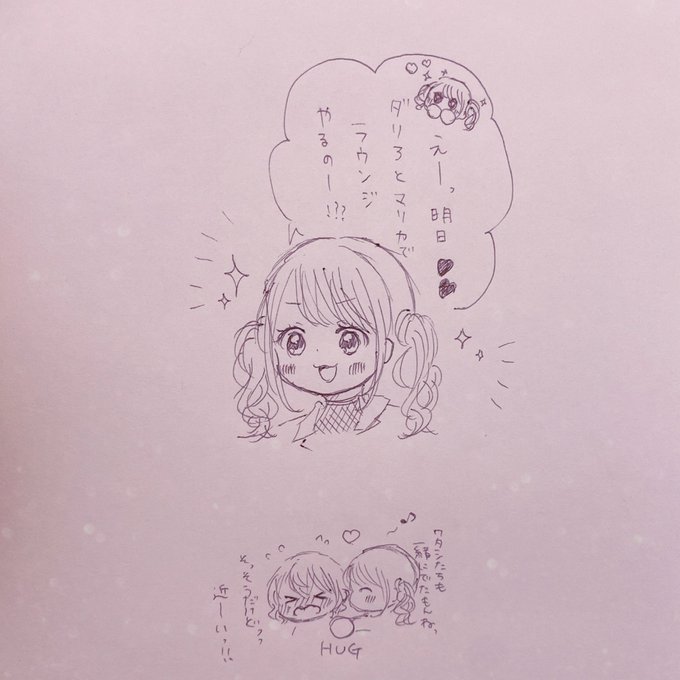 えーっ明日♥♥
ダリろとマリカで
ラウンジ
やるのー!??
ワタシたちも
もんねっ
そっそうだけどっっ
近ーいっ!!
HUG